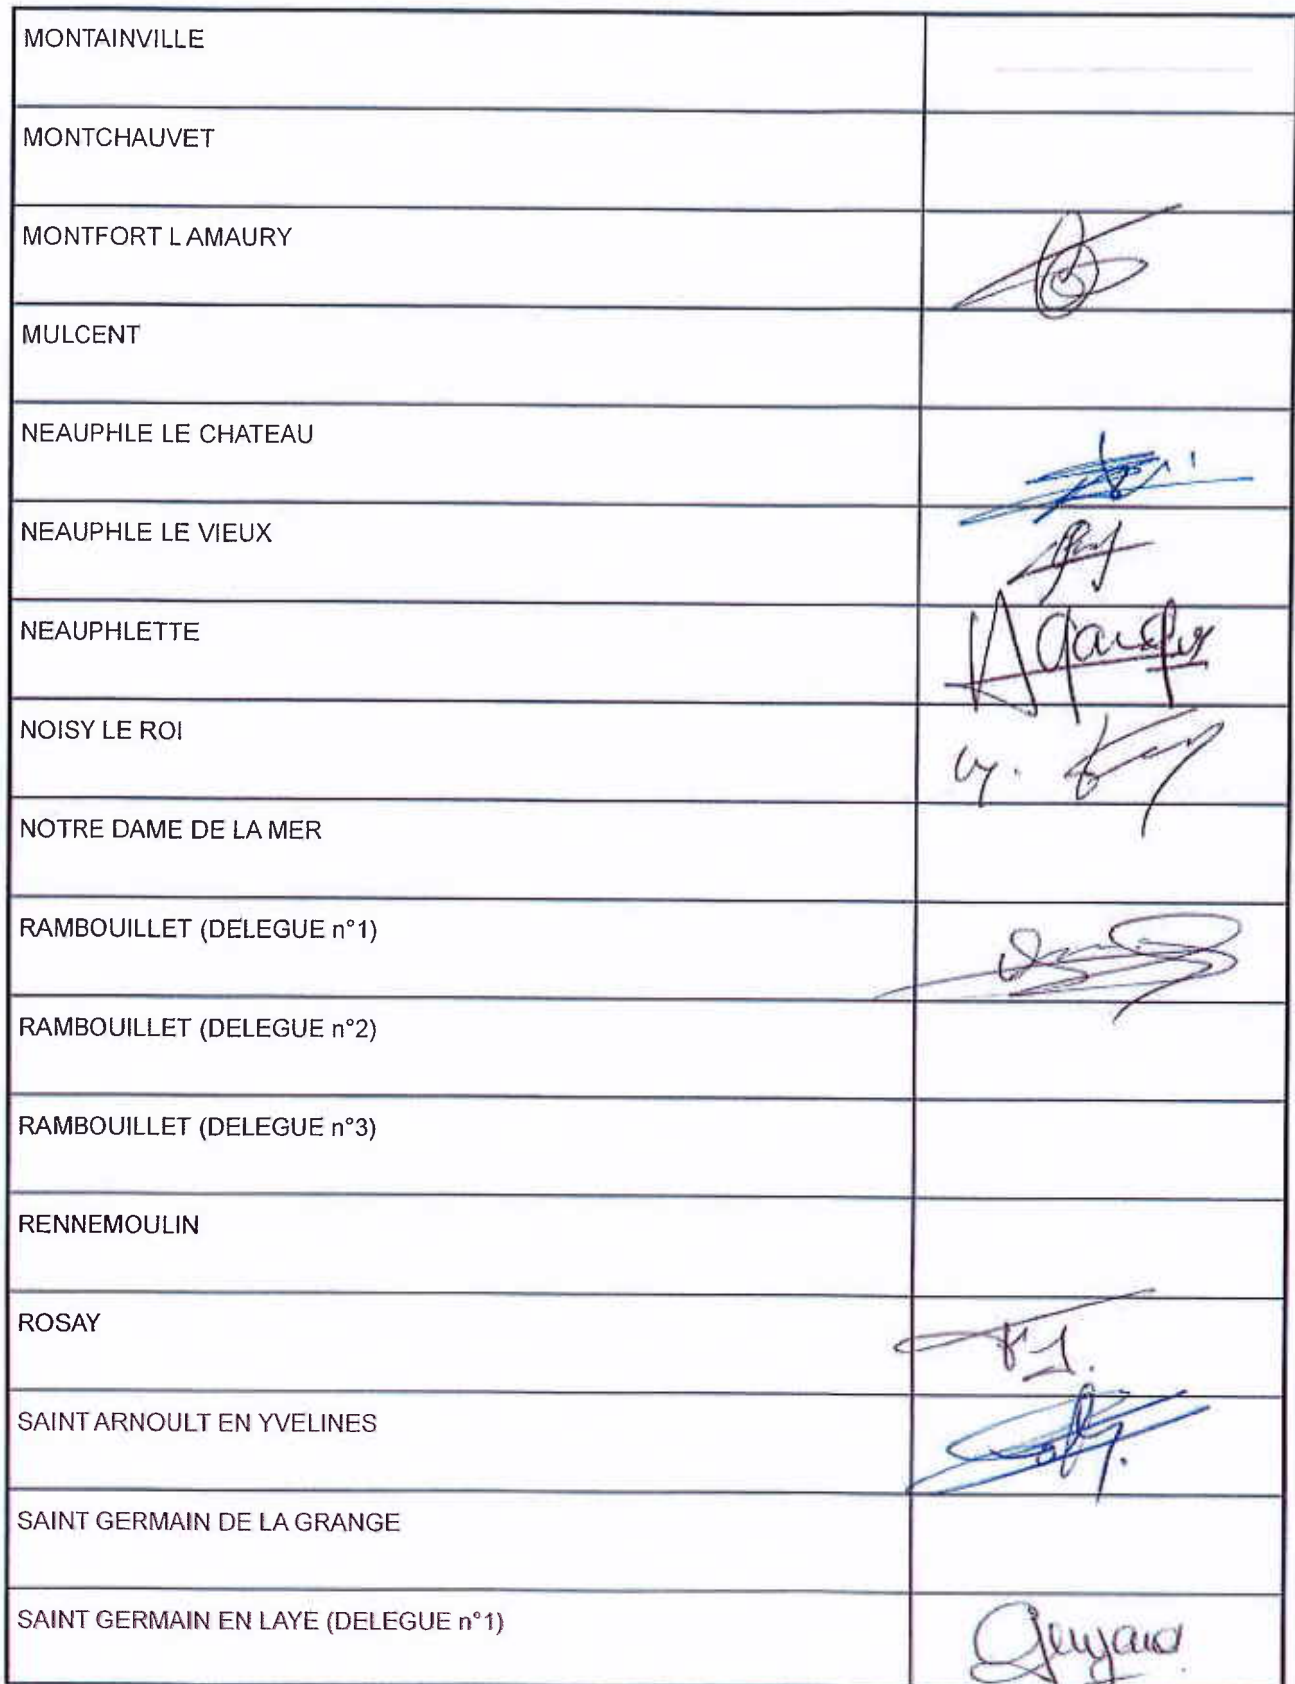 MONTAINVILLE
MONTCHAUVET
MONTFORT L AMAURY
MULCENT
NEAUPHLE LE CHATEAU
NEAUPHLE LE VIEUX
NEAUPHLETTE
NOISY LE ROI
NOTRE DAME DE LA MER
RAMBOUILLET (DELEGUE n°1)
RAMBOUILLET (DELEGUE n°2)
RAMBOUILLET (DELEGUE n°3)
RENNEMOULIN
ROSAY
SAINT ARNOULT EN YVELINES
SAINT GERMAIN DE LA GRANGE
SAINT GERMAIN EN LAYE (DELEGUE n°1)